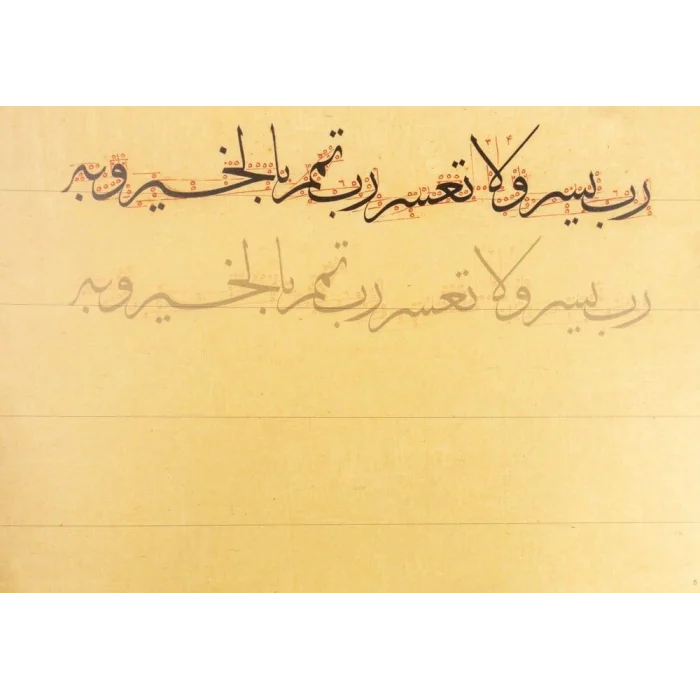 رب يسر ولا تعسر رب تمم بالخير وبه
رب يسر ولا تعسر رب تمم بالخير وبه